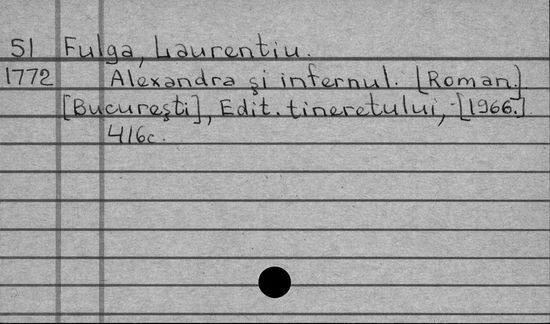 51 Fulga, Laurentiu.
1772 Alexandra şi infernul. [Roman.]
[Bucureşti], Edit. tineretului, [1966.]
416c.